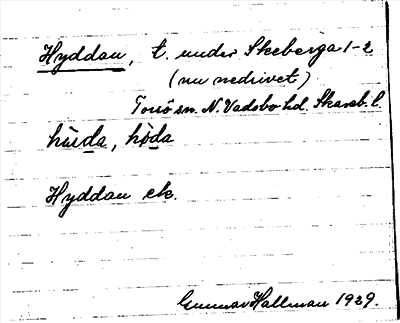 Hyddan, t. under Skeberga 1-2
(nu nedrivet)
Torsö sn. N. Vadsbo hd. Skarab. l.
hùda, hòda
Hyddan ek.
Gunnar Hallman 1929.